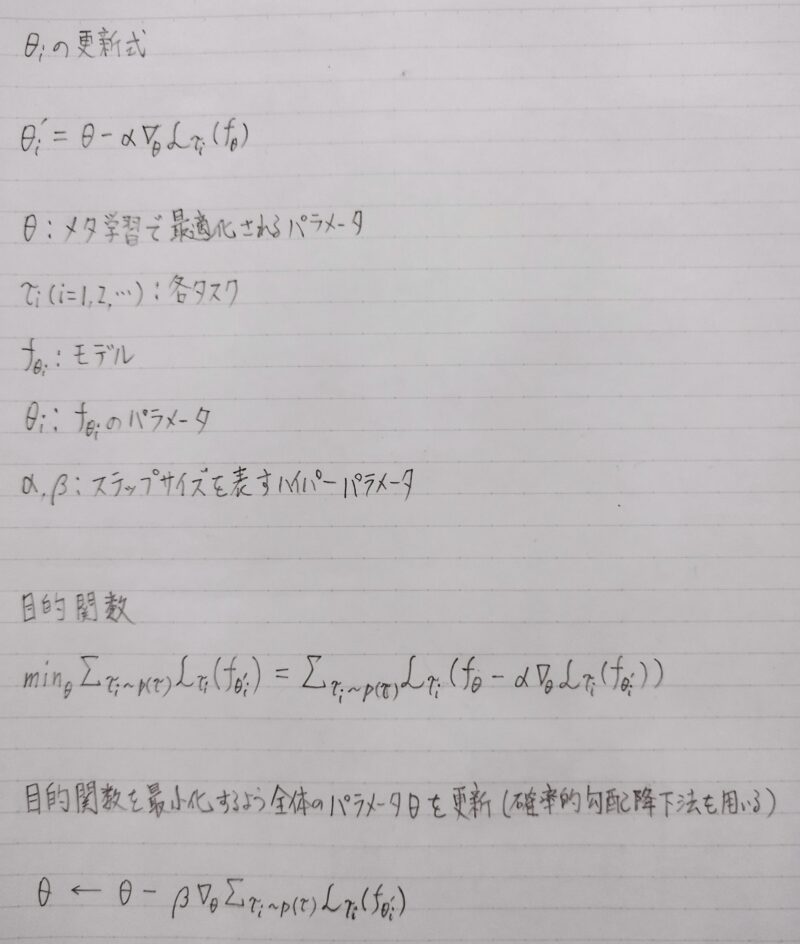 θᵢの更新式
θᵢ′ = θ - α∇_θ ℒ_{τᵢ}(f_θ)
θ : メタ学習で最適化されるパラメータ
τᵢ(i=1,2,…) : 各タスク
f_{θᵢ} : モデル
θᵢ : f_{θᵢ}のパラメータ
α,β : ステップサイズを表すハイパーパラメータ
目的関数
min_θ Σ_{τᵢ~p(τ)} ℒ_{τᵢ}(f_{θᵢ′}) = Σ_{τᵢ~p(τ)} ℒ_{τᵢ}(f_θ - α∇_θ ℒ_{τᵢ}(f_{θᵢ′}))
目的関数を最小化するよう全体のパラメータθを更新(確率的勾配降下法も用いる)
θ ← θ - β∇_θ Σ_{τᵢ~p(τ)} ℒ_{τᵢ}(f_{θᵢ′})